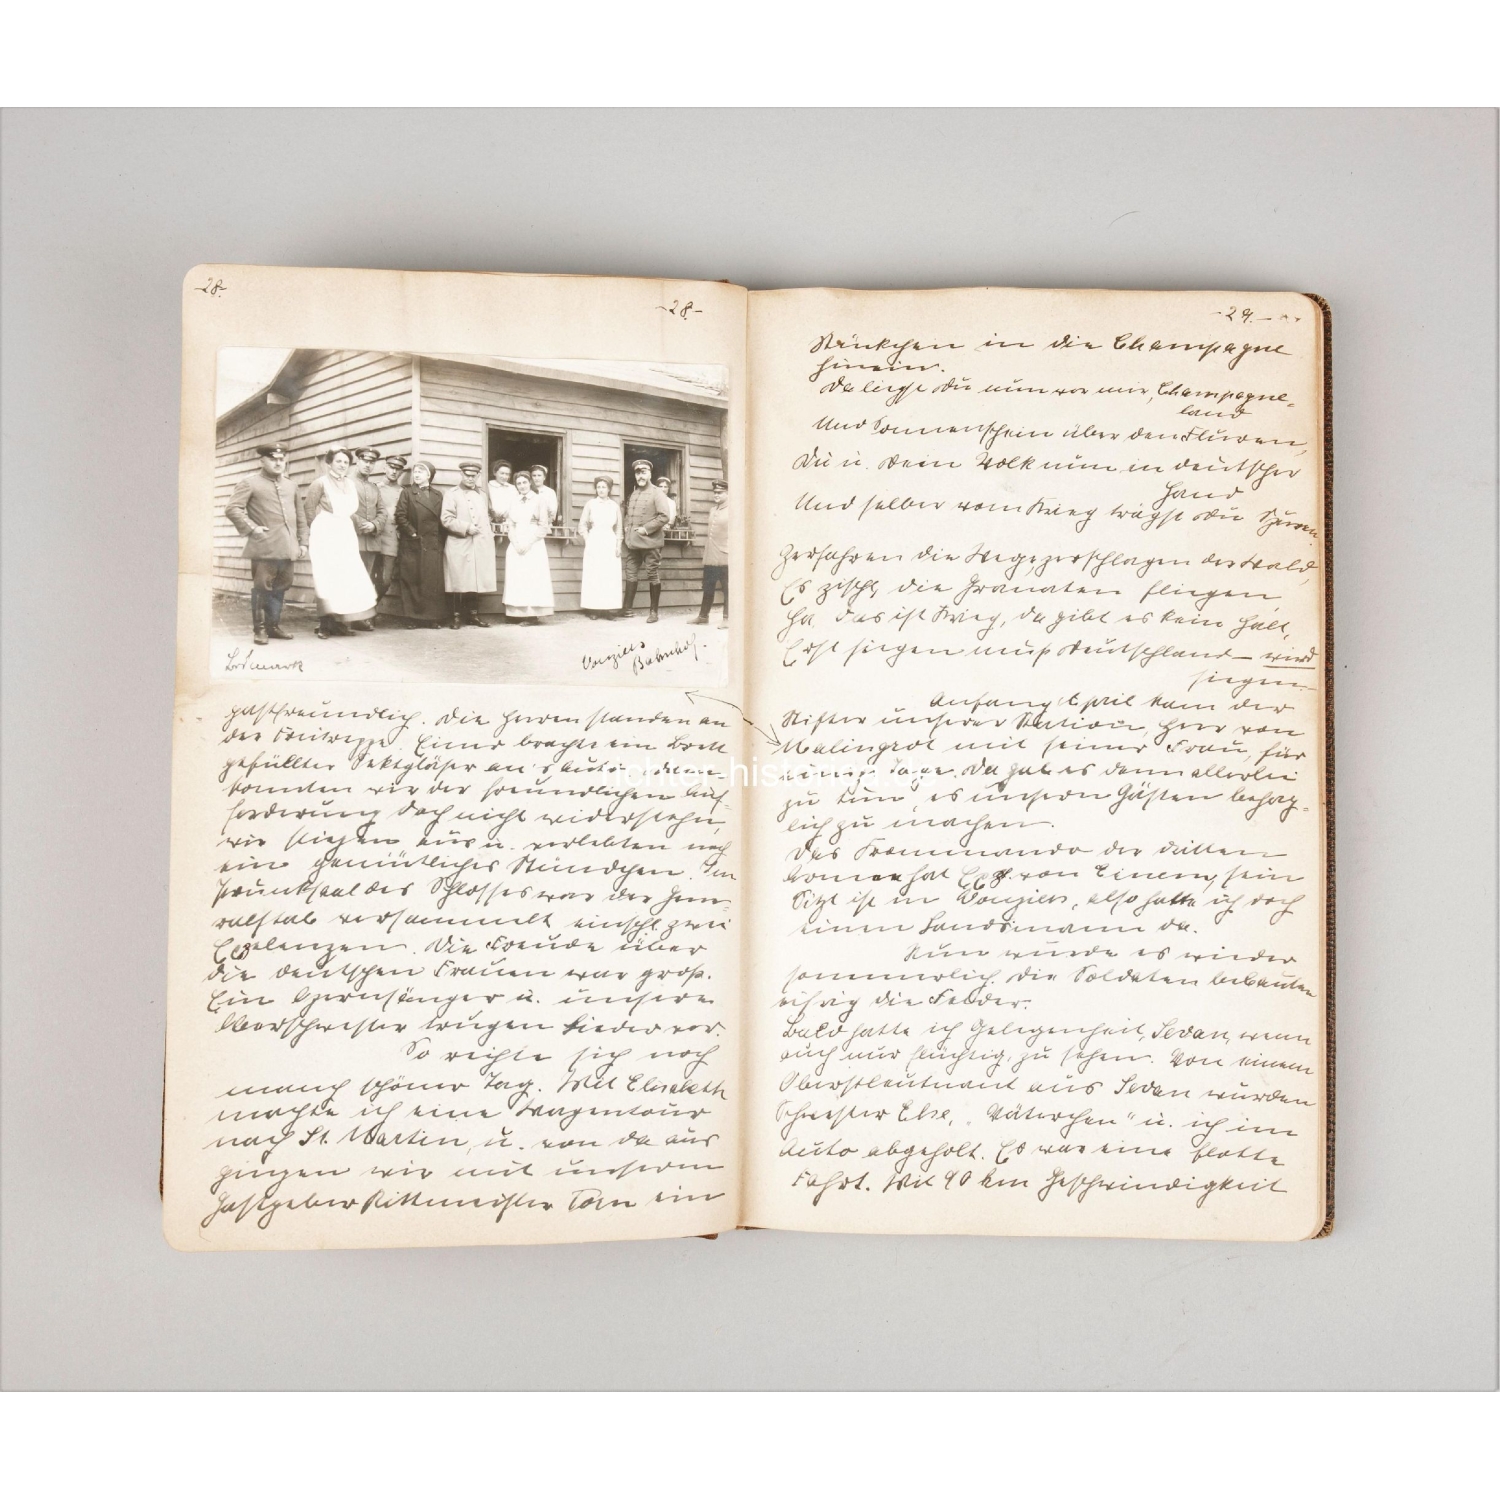 -28-
-28-
Vouziers
Bahnhof.
gastfreundlich. Die Herren standen an
der Freitreppe. Einer brachte ein Brett
gefüllter Sektgläser an's Auto, dann
konnten wir der freundlichen Auf-
forderung doch nicht widerstehn,
wir stiegen aus u. verlebten noch
ein gemütliches Stündchen. Im
Prunksaal des Schlosses war der Gene-
ralstab versammelt einschl. zwei
Exzelenzen. Die Freude über
die deutschen Frauen war groß.
Ein Opernsänger u. unsere
Oberschwester trugen Lieder vor.
So reihte sich noch
manch schöner Tag. Mit Elisabeth
machte ich eine Wagentour
nach St. Martin, u. von da aus
gingen wir mit unserm
Gastgeber Rittmeister Torn ein
-29.-
Stückchen in die Champagne
hinein.
Da liegst Du nun vor mir, Champagne-
land
Und Sonnenschein über den Fluren,
Du u. Dein Volk nun in deutscher
Hand
Und selber vom Krieg trägst Du Spuren.
Zerfahren die Wege, zerschlagen der Wald,
Es zischt, die Granaten fliegen,
Ha, das ist Krieg, da gibt es kein Halt,
Erst siegen muß Deutschland – wird
siegen.
Anfang April kam der
Stifter unserer Station, Herr von
Malingrot mit seiner Frau, für
einige Tage. Da gab es denn allerlei
zu tun, es unsern Gästen behag-
lich zu machen.
Das Kommando der dritten
Armee hat Exz. von Einem, sein
Sitz ist in Vouziers, also hatte ich doch
einen Landsmann da.
Nun wurde es wieder
sommerlich. Die Soldaten bebauten
eifrig die Felder.
Bald hatte ich Gelegenheit, Sedan, wenn
auch nur flüchtig, zu sehen. Von einem
Oberstleutnant aus Sedan wurden
Schwester Else, "Väterchen" u. ich im
Auto abgeholt. Es war eine flotte
Fahrt. Mit 90 km Geschwindigkeit